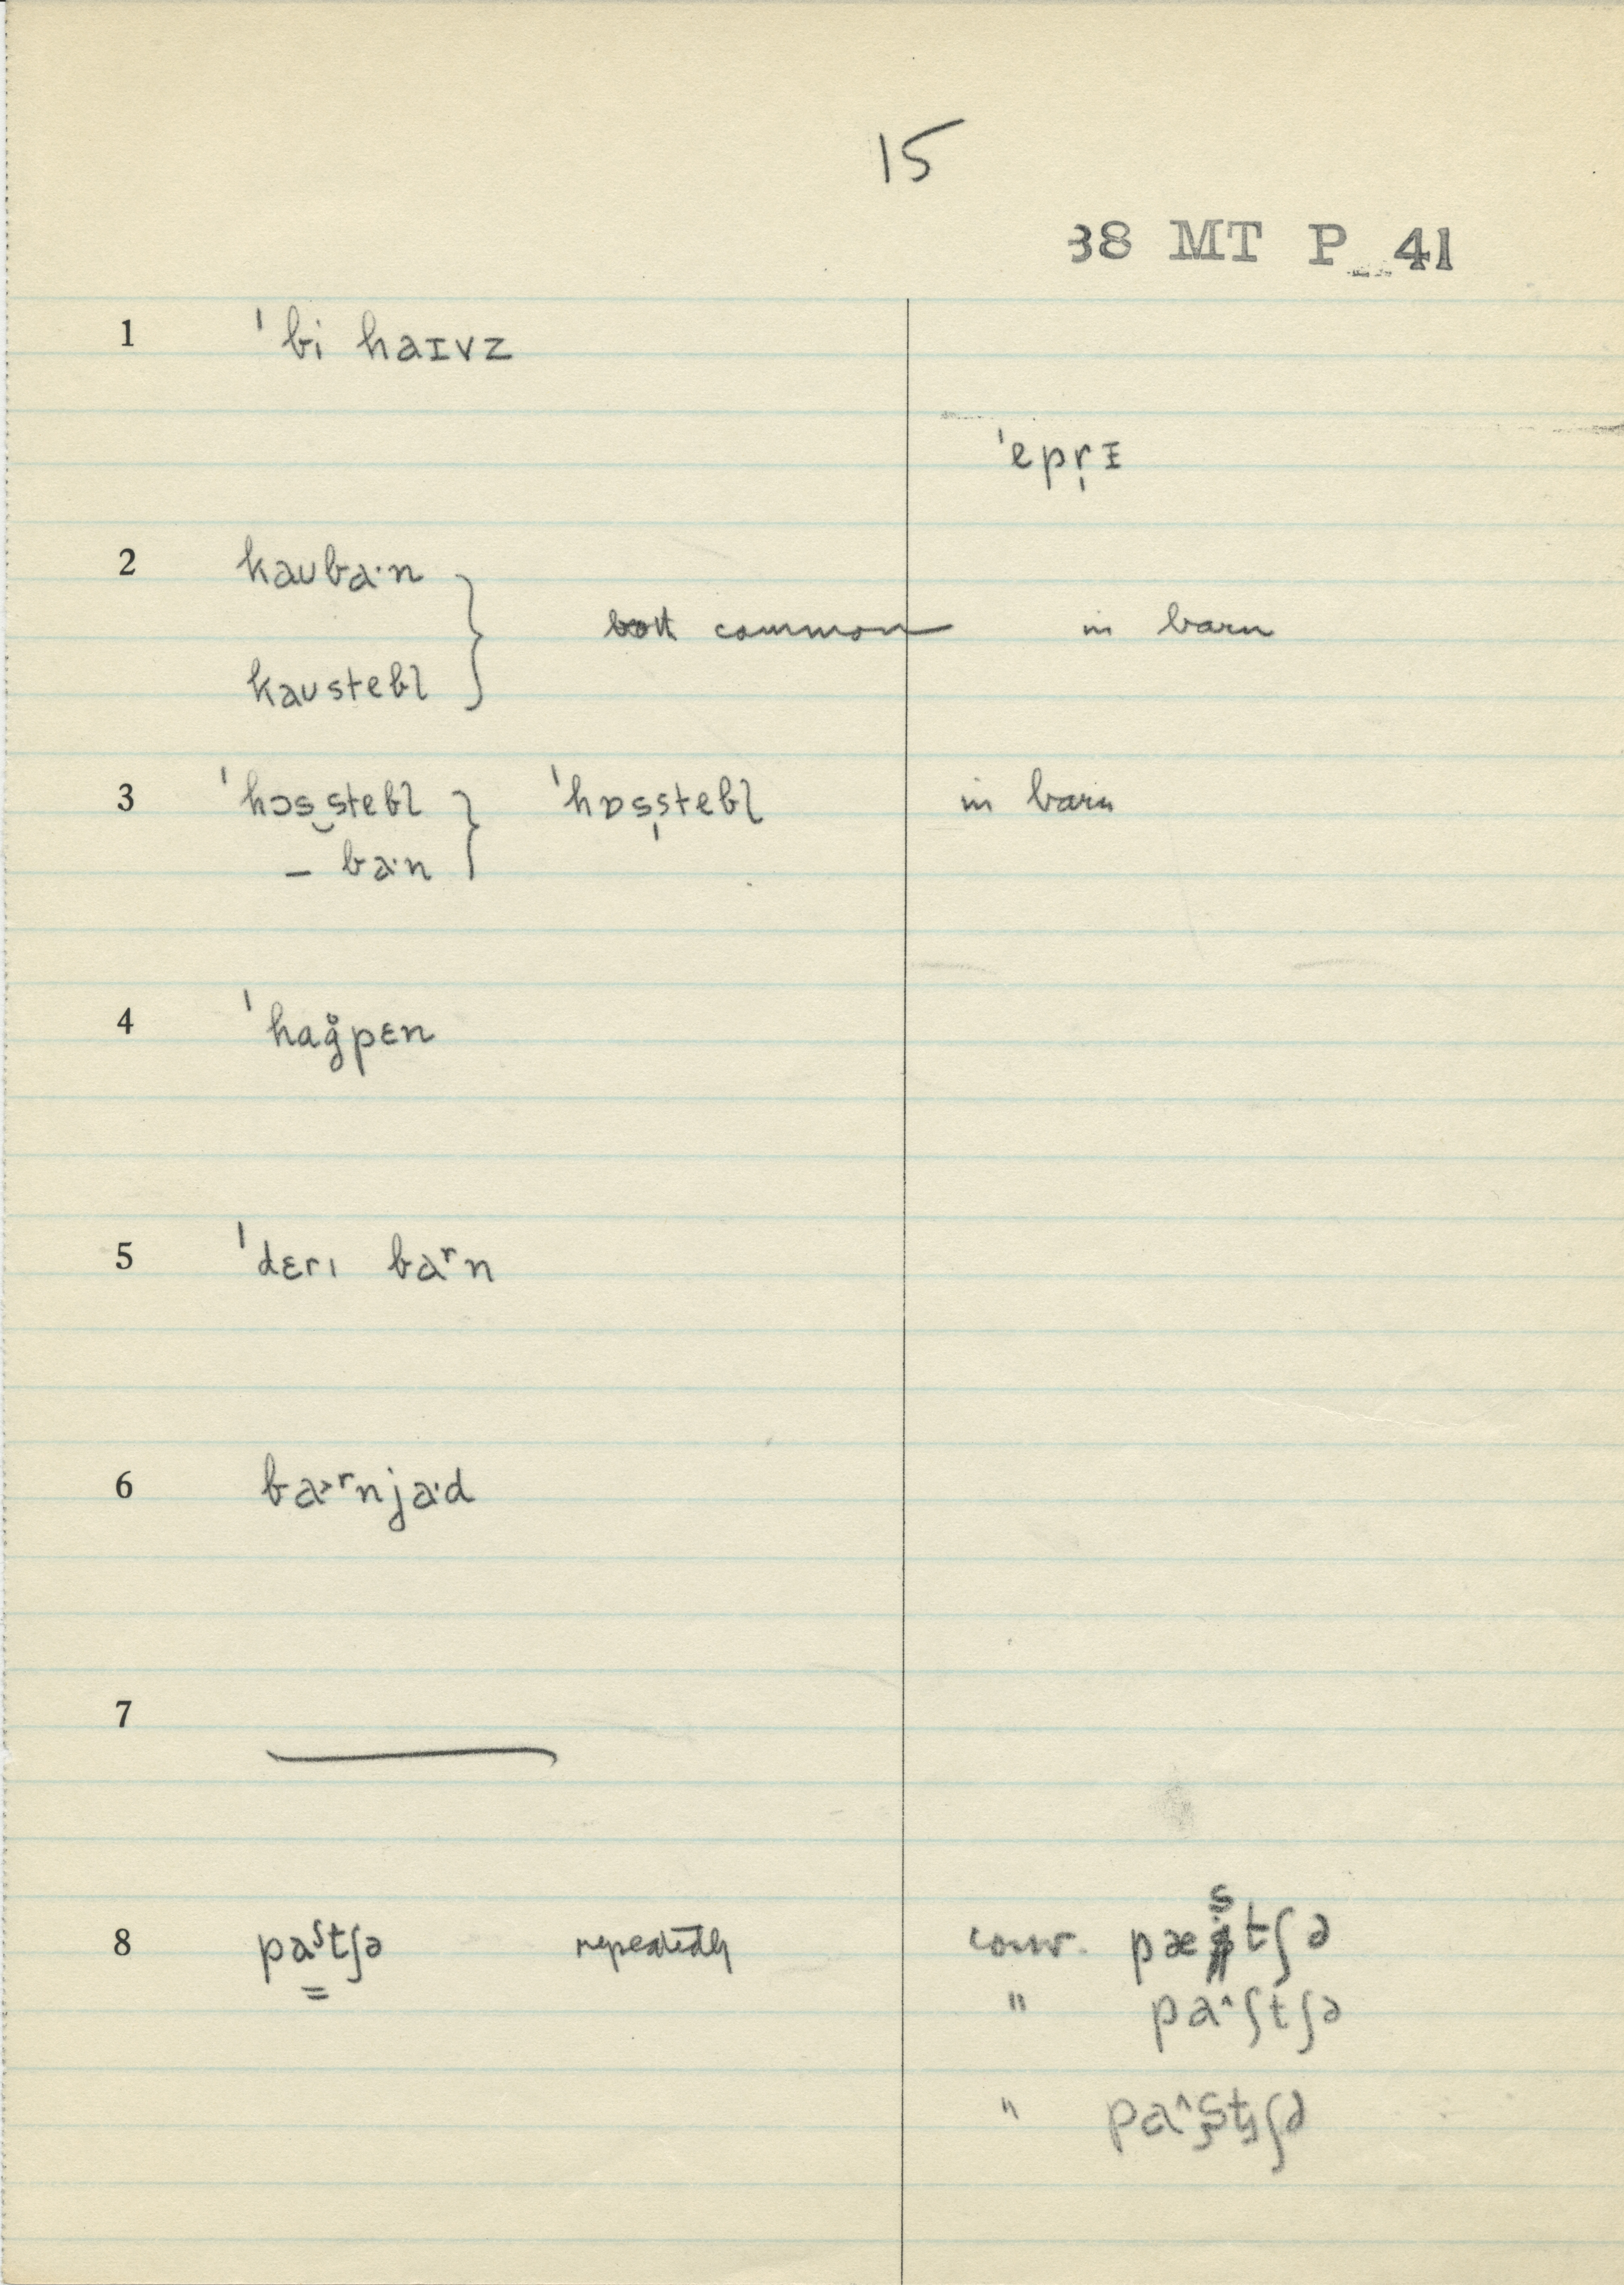 15
38 MT P 41
1 ˈbi haɪvz
ˈepr̩ɪ
2 kaʊba·n
both common in barn
kaʊstebl
3 ˈhɔs‿stebl ˈhɒss̩tebl in barn
– ba·n
4 ˈhag̊pɛn
5 ˈdɛrɪ baʳn
6 ba˃ʳnja·d
7
8 paˢtʃə repeatedly conv. pæstʃə
" pa˄ʃtʃə
" pa˄ʂtʃə